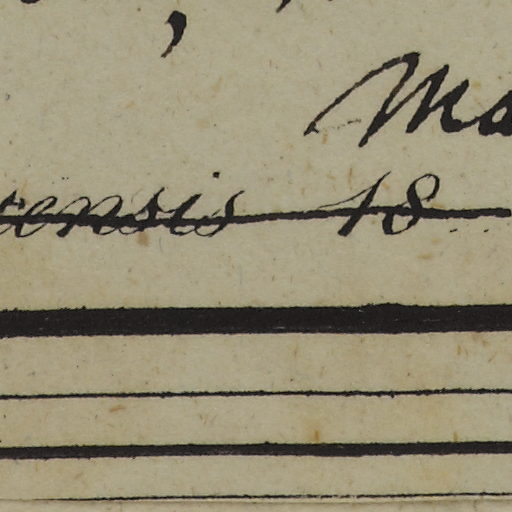 Ma
ensis 18